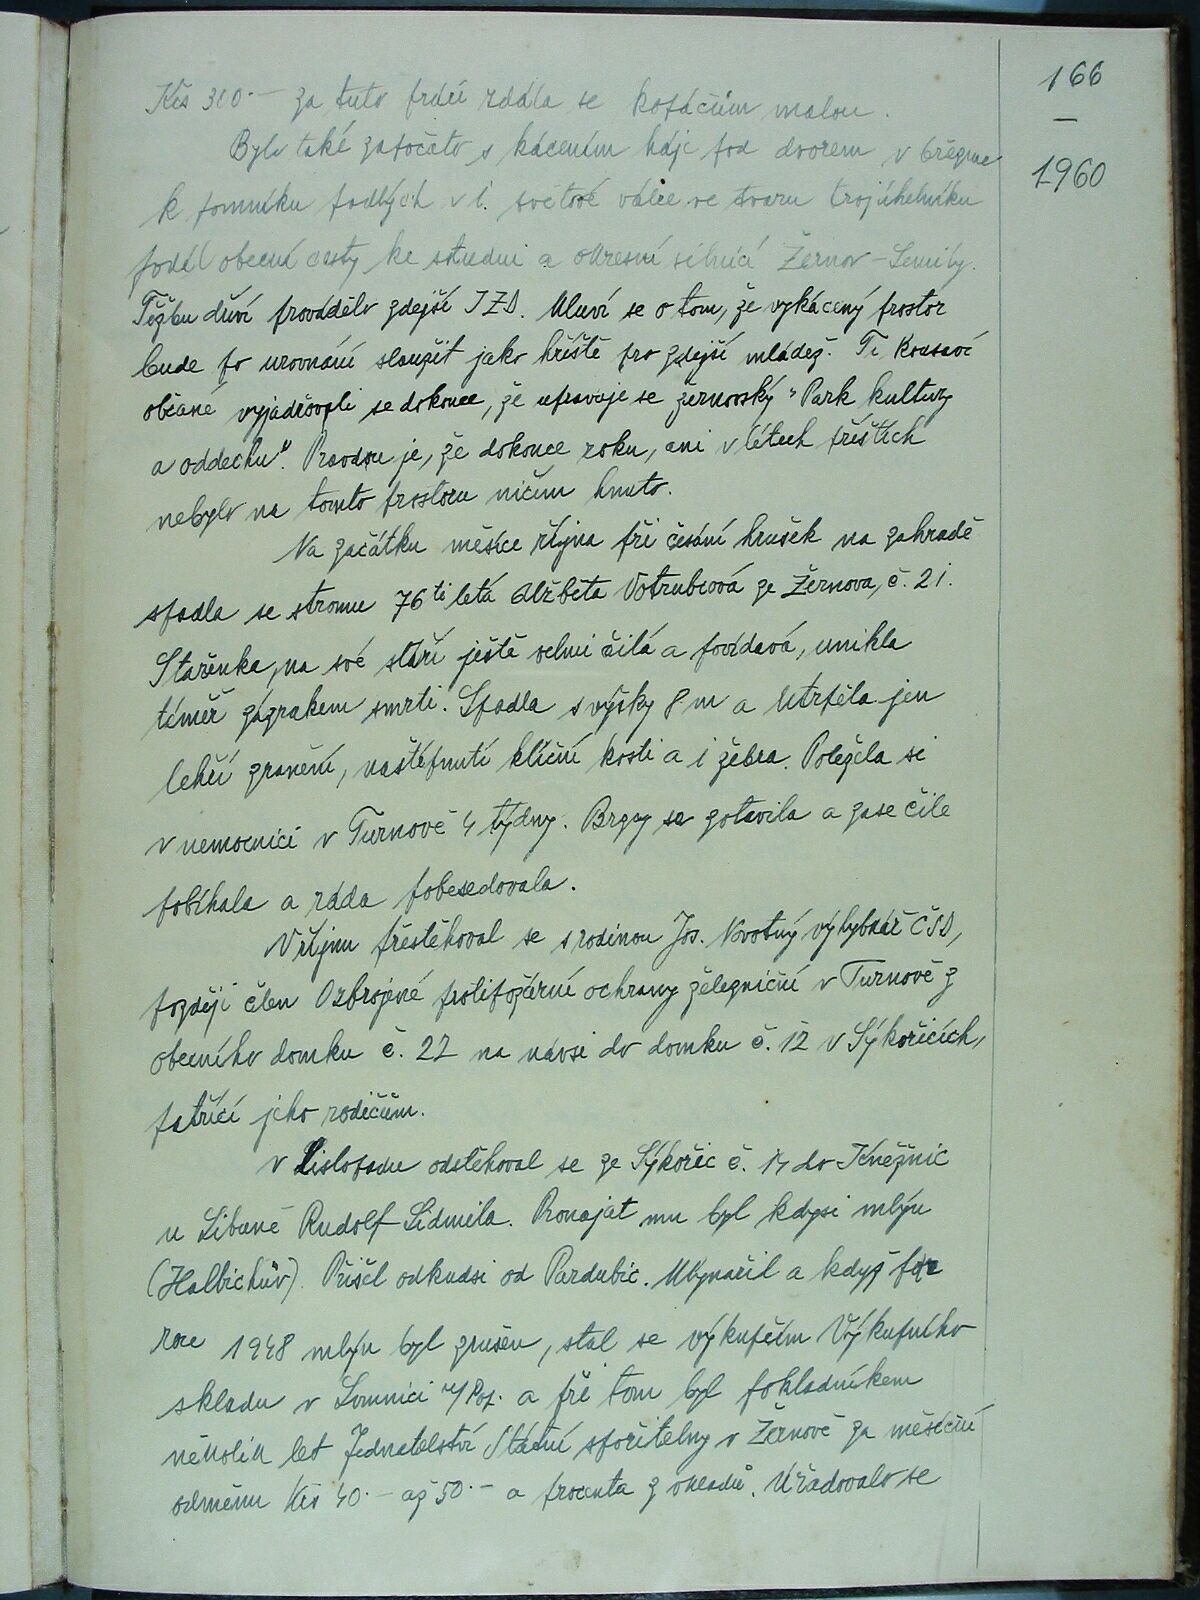 166
—
1960
Kčs 300.— za tuto práci zdála se kopáčům malou.
Bylo také započato s kácením háje pod dvorem v březnu
k pomníku padlých v I. světové válce ve tvaru trojúhelníku
podél obecní cesty ke studni a okresní silnicí Žernov – Semily.
Těžbu dříví provádělo zdejší JZD. Mluví se o tom, že vykácený prostor
bude po urovnání sloužit jako hřiště pro zdejší mládež. Ti kousaví
občané vyjadřovali se dokonce, že upravuje se žernovský "Park kultury
a oddechu". Pravdou je, že dokonce roku, ani v létech příštích
nebylo na tomto prostoru ničím hnuto.
Na začátku měsíce října při česání hrušek na zahradě
spadla se stromu 76 ti letá Alžběta Votrubcová ze Žernova, č. 21.
Stařenka, na své stáří ještě velmi čilá a povídavá, unikla
téměř zázrakem smrti. Spadla s výšky 8 m a utrpěla jen
lehčí zranění, naštípnutí klíční kosti a i žebra. Poležela si
v nemocnici v Turnově 4 týdny. Brzy se zotavila a zase čile
pobíhala a ráda pobesedovala.
V říjnu přestěhoval se s rodinou Jos. Novotný výhybkář ČSD,
později člen Ozbrojené protipožární ochrany železniční v Turnově z
obecního domku č. 22 na návsi do domku č. 12 v Sýkořicích,
patřící jeho rodičům.
V Listopadu odstěhoval se ze Sýkořic č. 14 do Kněžnic
u Libuně Rudolf Lidmila. Pronajat mu byl kdysi mlýn
(Halbichův). Přišel odkudsi od Pardubic. Mlynařil a když po
roce 1948 mlýn byl zrušen, stal se výkupčím Výkupního
skladu v Lomnici n/Pop. a při tom byl pokladníkem
několik let Jednatelství Státní spořitelny v Žernově za měsíční
odměnu Kčs 40.— až 50.— a procenta z vkladů. Úřadovalo se